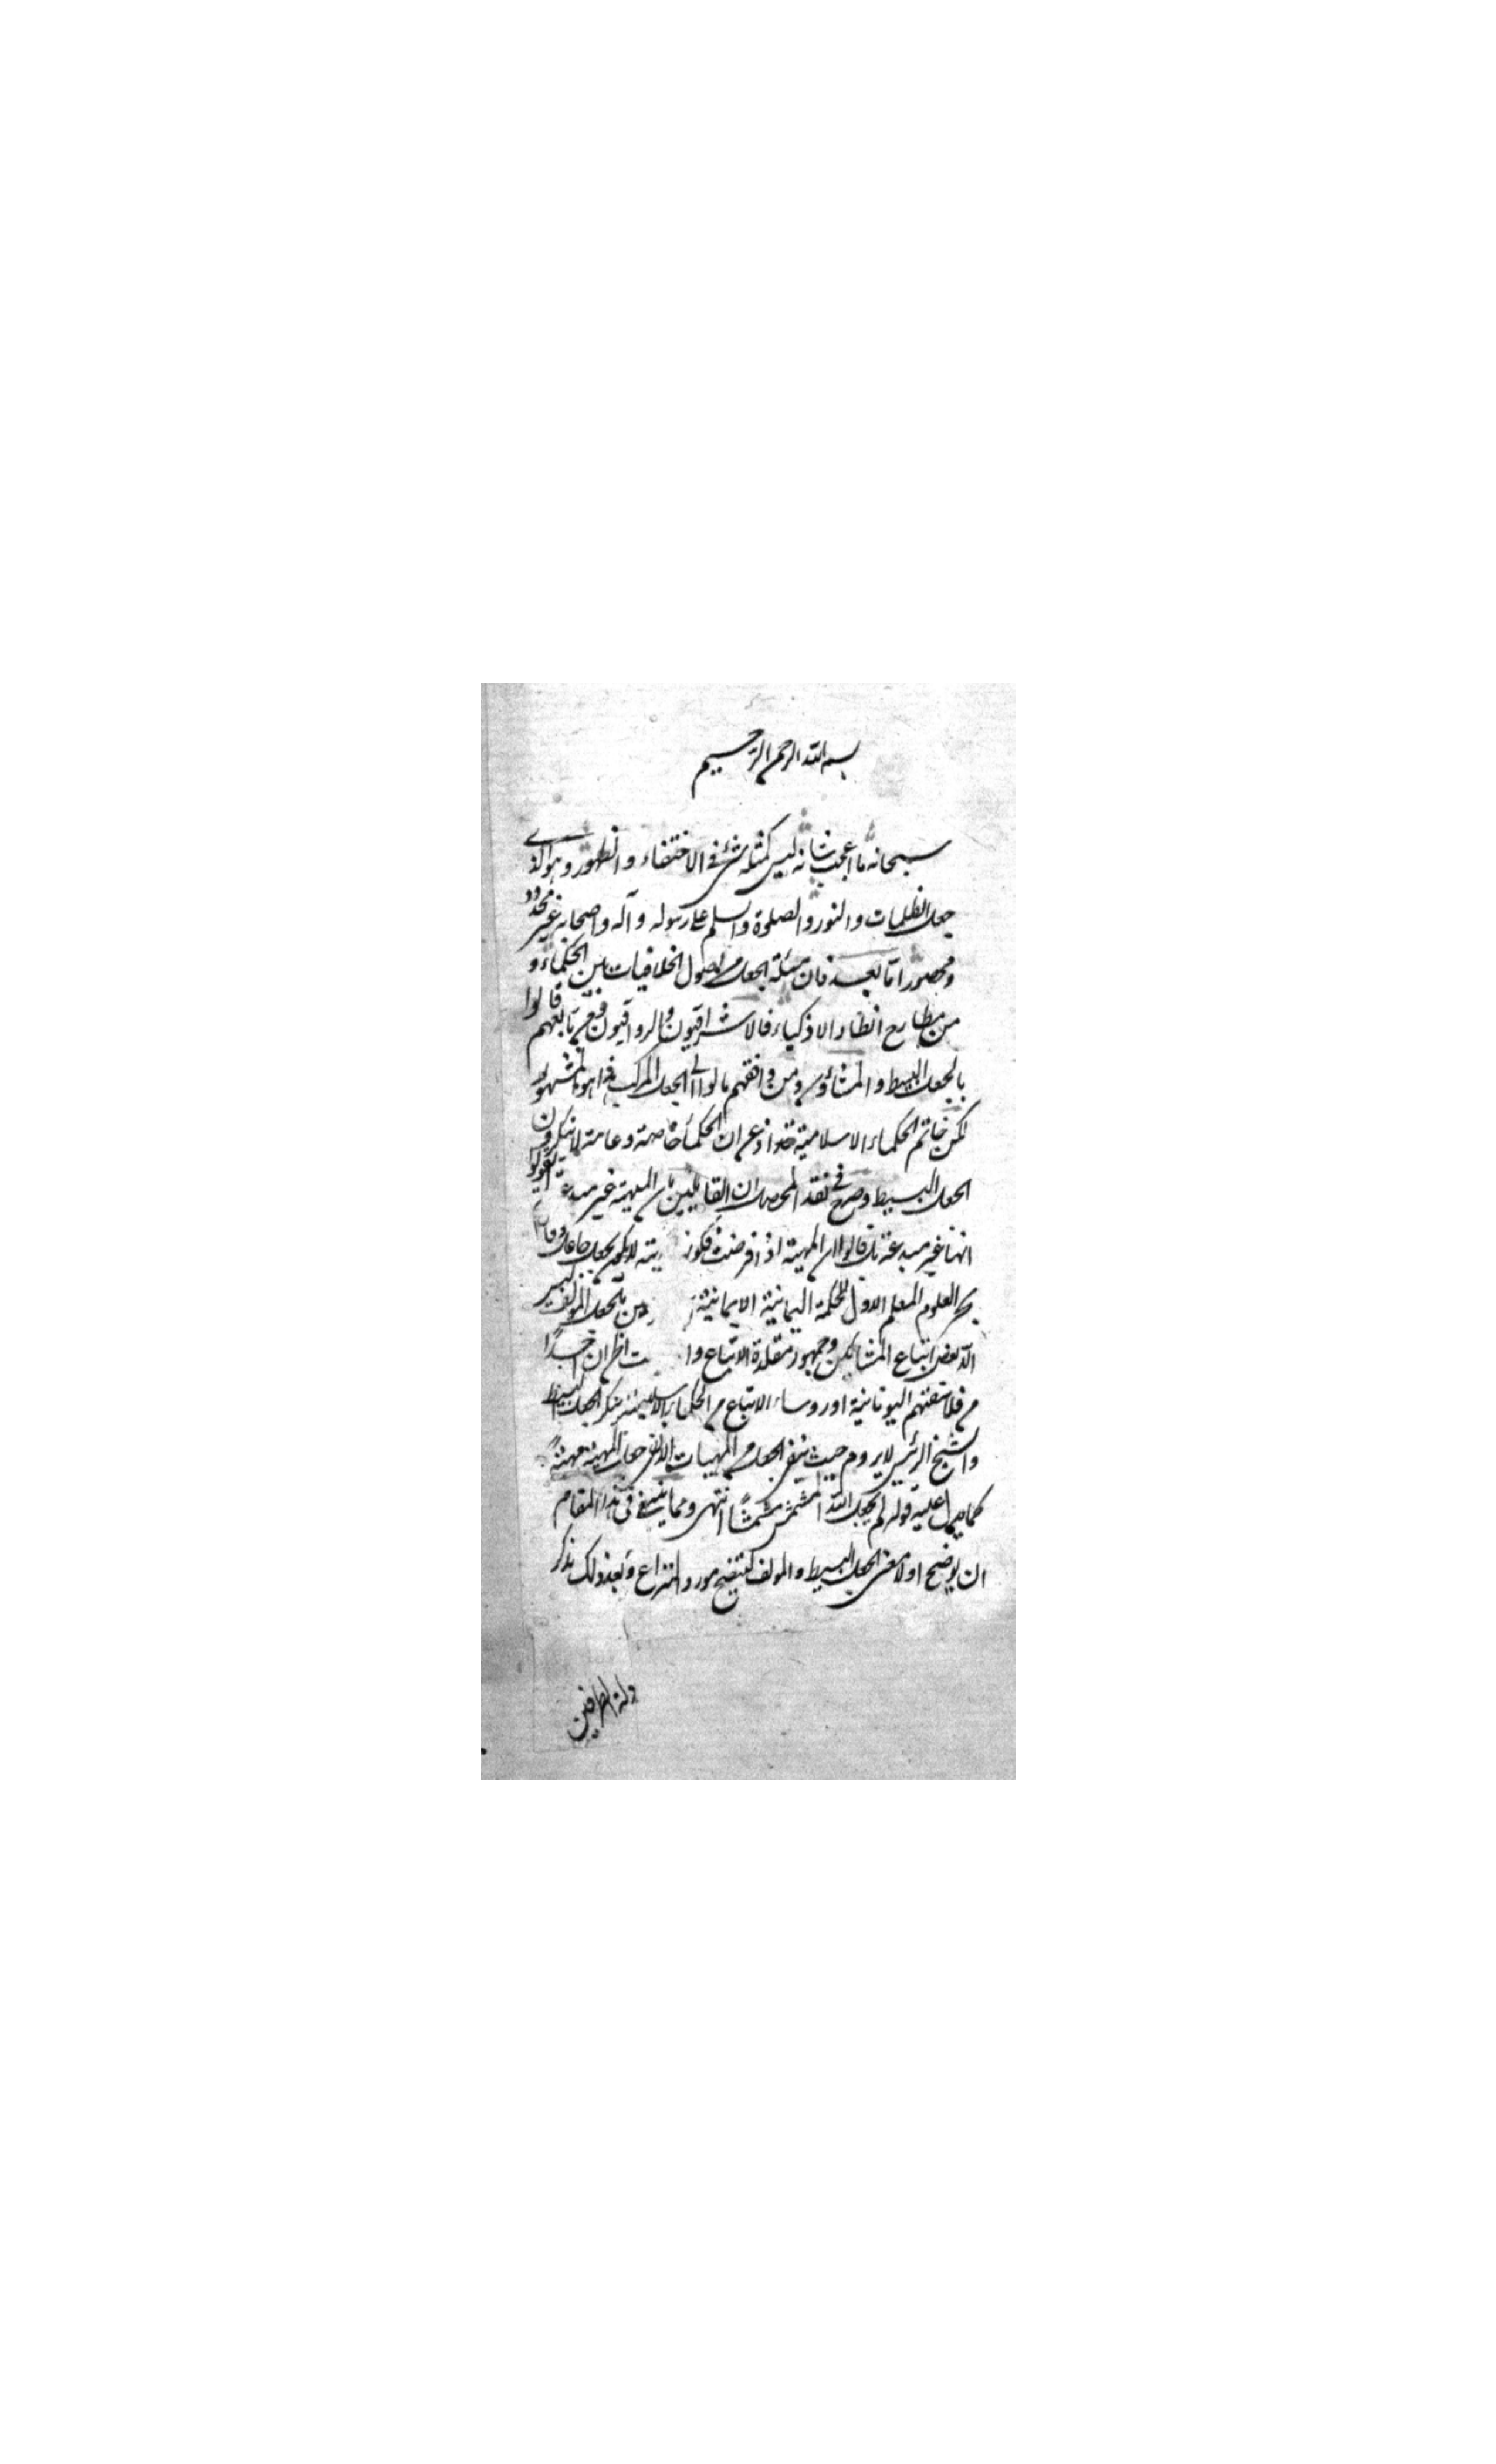 بسم الله الرحمن الرحيم
سبحانه ما اعجب شانه ليس كمثله شئ فى الاختفاء والظهور وهو الذى
جعل الظلمات والنور والصلوة والسلم على رسوله وآله واصحابه غير محدود
ومحصور اما بعد فان مسئلة الجعل من اصول الخلافيات بين الحكماء و
من مطارح انظار الاذكياء فالاشراقيون والرواقيون فمن تابعهم قالوا
بالجعل البسيط والمشاؤن ومن وافقهم مالوا الى الجعل المركب هذا هو المشهور
لكن خاتم الحكماء الاسلامية زعم ان الحكماء خاصة وعامة لا ينكرون
الجعل البسيط وصرح فى نقد المحصل ان القايلين بان المهية غير مبدعة لم يقولوا
انها غير مبدعة بل قالوا ان المهية اذا فرضت فكون يته لا يكون بجعل جاعل وقال
بحر العلوم المعلم الاول للحكمة اليمانية الايمانية بين بالجعل المولف ليس
الا بعض اتباع المشائين وجمهور مقلدة الاتباع و ت اظن ان احدا
من فلاسفتهم اليونانية او روساء الاتباع من الحكماء الاسلاميين ينكر الجعل البسيط
والشيخ الرئيس لا يروم حيث ينفى الجعل من المهيات الا نفى جعل المهية مهية
كما يدل عليه قوله لم يجعل الله المشمش مشمشا انتهى ومما ينبغى فى هذا المقام
ان يوضح اولا معنى الجعل البسيط والمولف ليتضح مورد النزاع وبعد ذلك نذكر
الطرفين